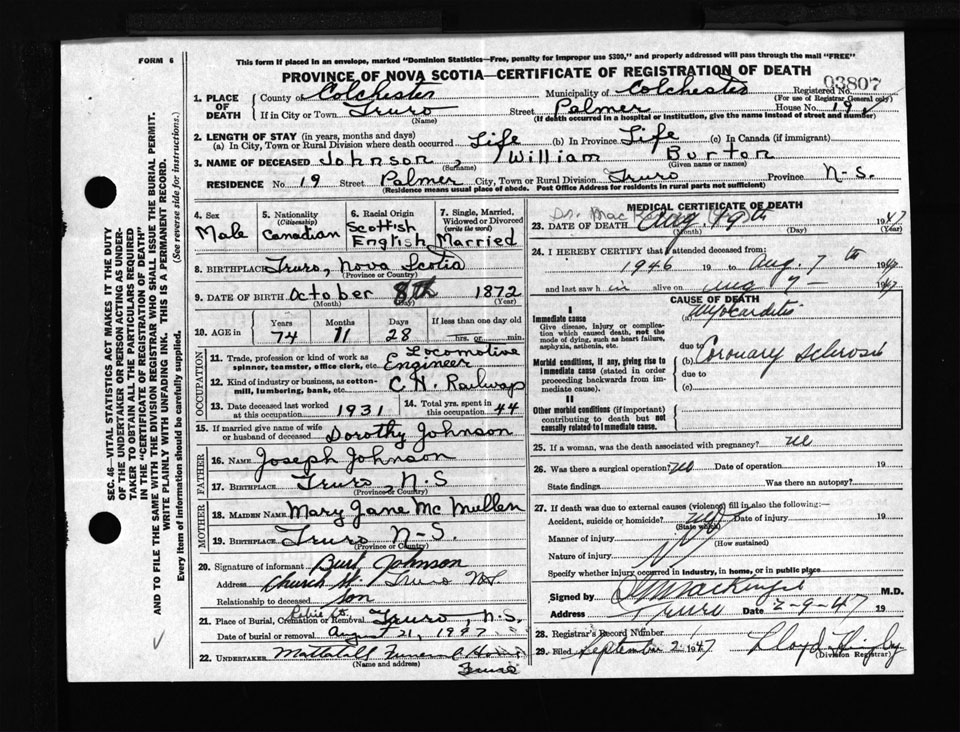 FORM 6
This form if placed in an envelope, marked "Dominion Statistics—Free, penalty for improper use $300," and properly addressed will pass through the mail "FREE"
PROVINCE OF NOVA SCOTIA—CERTIFICATE OF REGISTRATION OF DEATH
03807
1. PLACE OF DEATH County of Colchester Municipality of Colchester Registered No. (For use of Registrar General only)
If in City or Town Truro (Name) Street Palmer House No. 19
(If death occurred in a hospital or institution, give the name instead of street and number)
2. LENGTH OF STAY (in years, months and days)
(a) In City, Town or Rural Division where death occurred Life (b) In Province Life (c) In Canada (if immigrant)
3. NAME OF DECEASED Johnson, (Surname) William Burton (Given name or names)
RESIDENCE No 19 Street Palmer City, Town or Rural Division Truro Province N-S.
(Residence means usual place of abode. Post Office Address for residents in rural parts not sufficient)
4. Sex Male
5. Nationality (Citizenship) Canadian
6. Racial Origin Scottish English
7. Single, Married, Widowed or Divorced (write the word) Married
8. BIRTHPLACE Truro, Nova Scotia (Province or Country)
9. DATE OF BIRTH October (Month) 8th (Day) 1872 (Year)
10. AGE in Years 74 Months 11 Days 28 If less than one day old hrs. or min.
OCCUPATION
11. Trade, profession or kind of work as spinner, teamster, office clerk, etc. Locomotive Engineer
12. Kind of industry or business, as cotton-mill, lumbering, bank, etc. C.N. Railway
13. Date deceased last worked at this occupation 1931
14. Total yrs. spent in this occupation 44
15. If married give name of wife or husband of deceased Dorothy Johnson
FATHER
16. NAME Joseph Johnson
17. BIRTHPLACE Truro, N.S (Province or Country)
MOTHER
18. MAIDEN NAME Mary Jane Mc Mullen
19. BIRTHPLACE Truro N-S. (Province or Country)
20. Signature of informant Burt Johnson
Address Church St. Truro NS
Relationship to deceased Son
21. Place of Burial, Cremation or Removal Truro, N.S.
Date of burial or removal August 21, 1947
22. UNDERTAKER Mattatall Funeral Home
(Name and address) Truro
MEDICAL CERTIFICATE OF DEATH
23. DATE OF DEATH Aug. (Month) 19th (Day) 1947 (Year)
24. I HEREBY CERTIFY that I attended deceased from:
1946 19 to Aug. 7th 1947
and last saw h im alive on Aug 7- 1947
CAUSE OF DEATH
I
Immediate cause
Give disease, injury or complication which caused death, not the mode of dying, such as heart failure, asphyxia, asthenia, etc.
(a) Myocarditis
due to
Morbid conditions, if any, giving rise to immediate cause (stated in order proceeding backwards from immediate cause).
(b) Coronary Sclerosis
due to
(c)
II
Other morbid conditions (if important) contributing to death but not causally related to immediate cause.
25. If a woman, was the death associated with pregnancy?
26. Was there a surgical operation? no Date of operation 19
State findings Was there an autopsy?
27. If death was due to external causes (violence) fill in also the following:—
Accident, suicide or homicide? (State which) Date of injury 19
Manner of injury (How sustained)
Nature of injury
Specify whether injury occurred in industry, in home, or in public place
Signed by MacKenzie M.D.
Address Truro Date 2-9-47 19
28. Registrar's Record Number
29. Filed September 2. 1947 Lloyd (Division Registrar)
SEC. 46—VITAL STATISTICS ACT MAKES IT THE DUTY
OF THE UNDERTAKER OR PERSON ACTING AS UNDER-
TAKER TO OBTAIN ALL THE PARTICULARS REQUIRED
IN THE "CERTIFICATE OF REGISTRATION OF DEATH"
AND TO FILE THE SAME WITH THE DIVISION REGISTRAR WHO SHALL ISSUE THE BURIAL PERMIT.
WRITE PLAINLY WITH UNFADING INK. THIS IS A PERMANENT RECORD.
Every item of information should be carefully supplied. (See reverse side for instructions.)